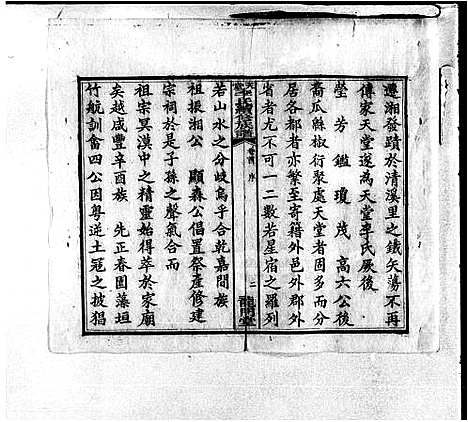 遷湘發蹟於清溪里之鐵矢蕩不再
傳家天堂遂為天堂李氏厥後
瑩 芳 鑑 瓊 茂 高六公後
裔瓜緜椒衍聚處天堂者固多而分
居各都者亦繁至寄籍外邑外郡外
省者尤不可一二數若星宿之羅列
卷首 序 二 龍門堂
若山水之分岐烏乎合乾嘉間族
祖振湘公 顯森公倡置祭產修建
宗祠於是子孫之聲氣合而
祖宗冥漠中之精靈始得萃於家廟
矣越咸豐辛酉族 先正春圃藻垣
竹航訓畬四公因粵逆土寇之披猖